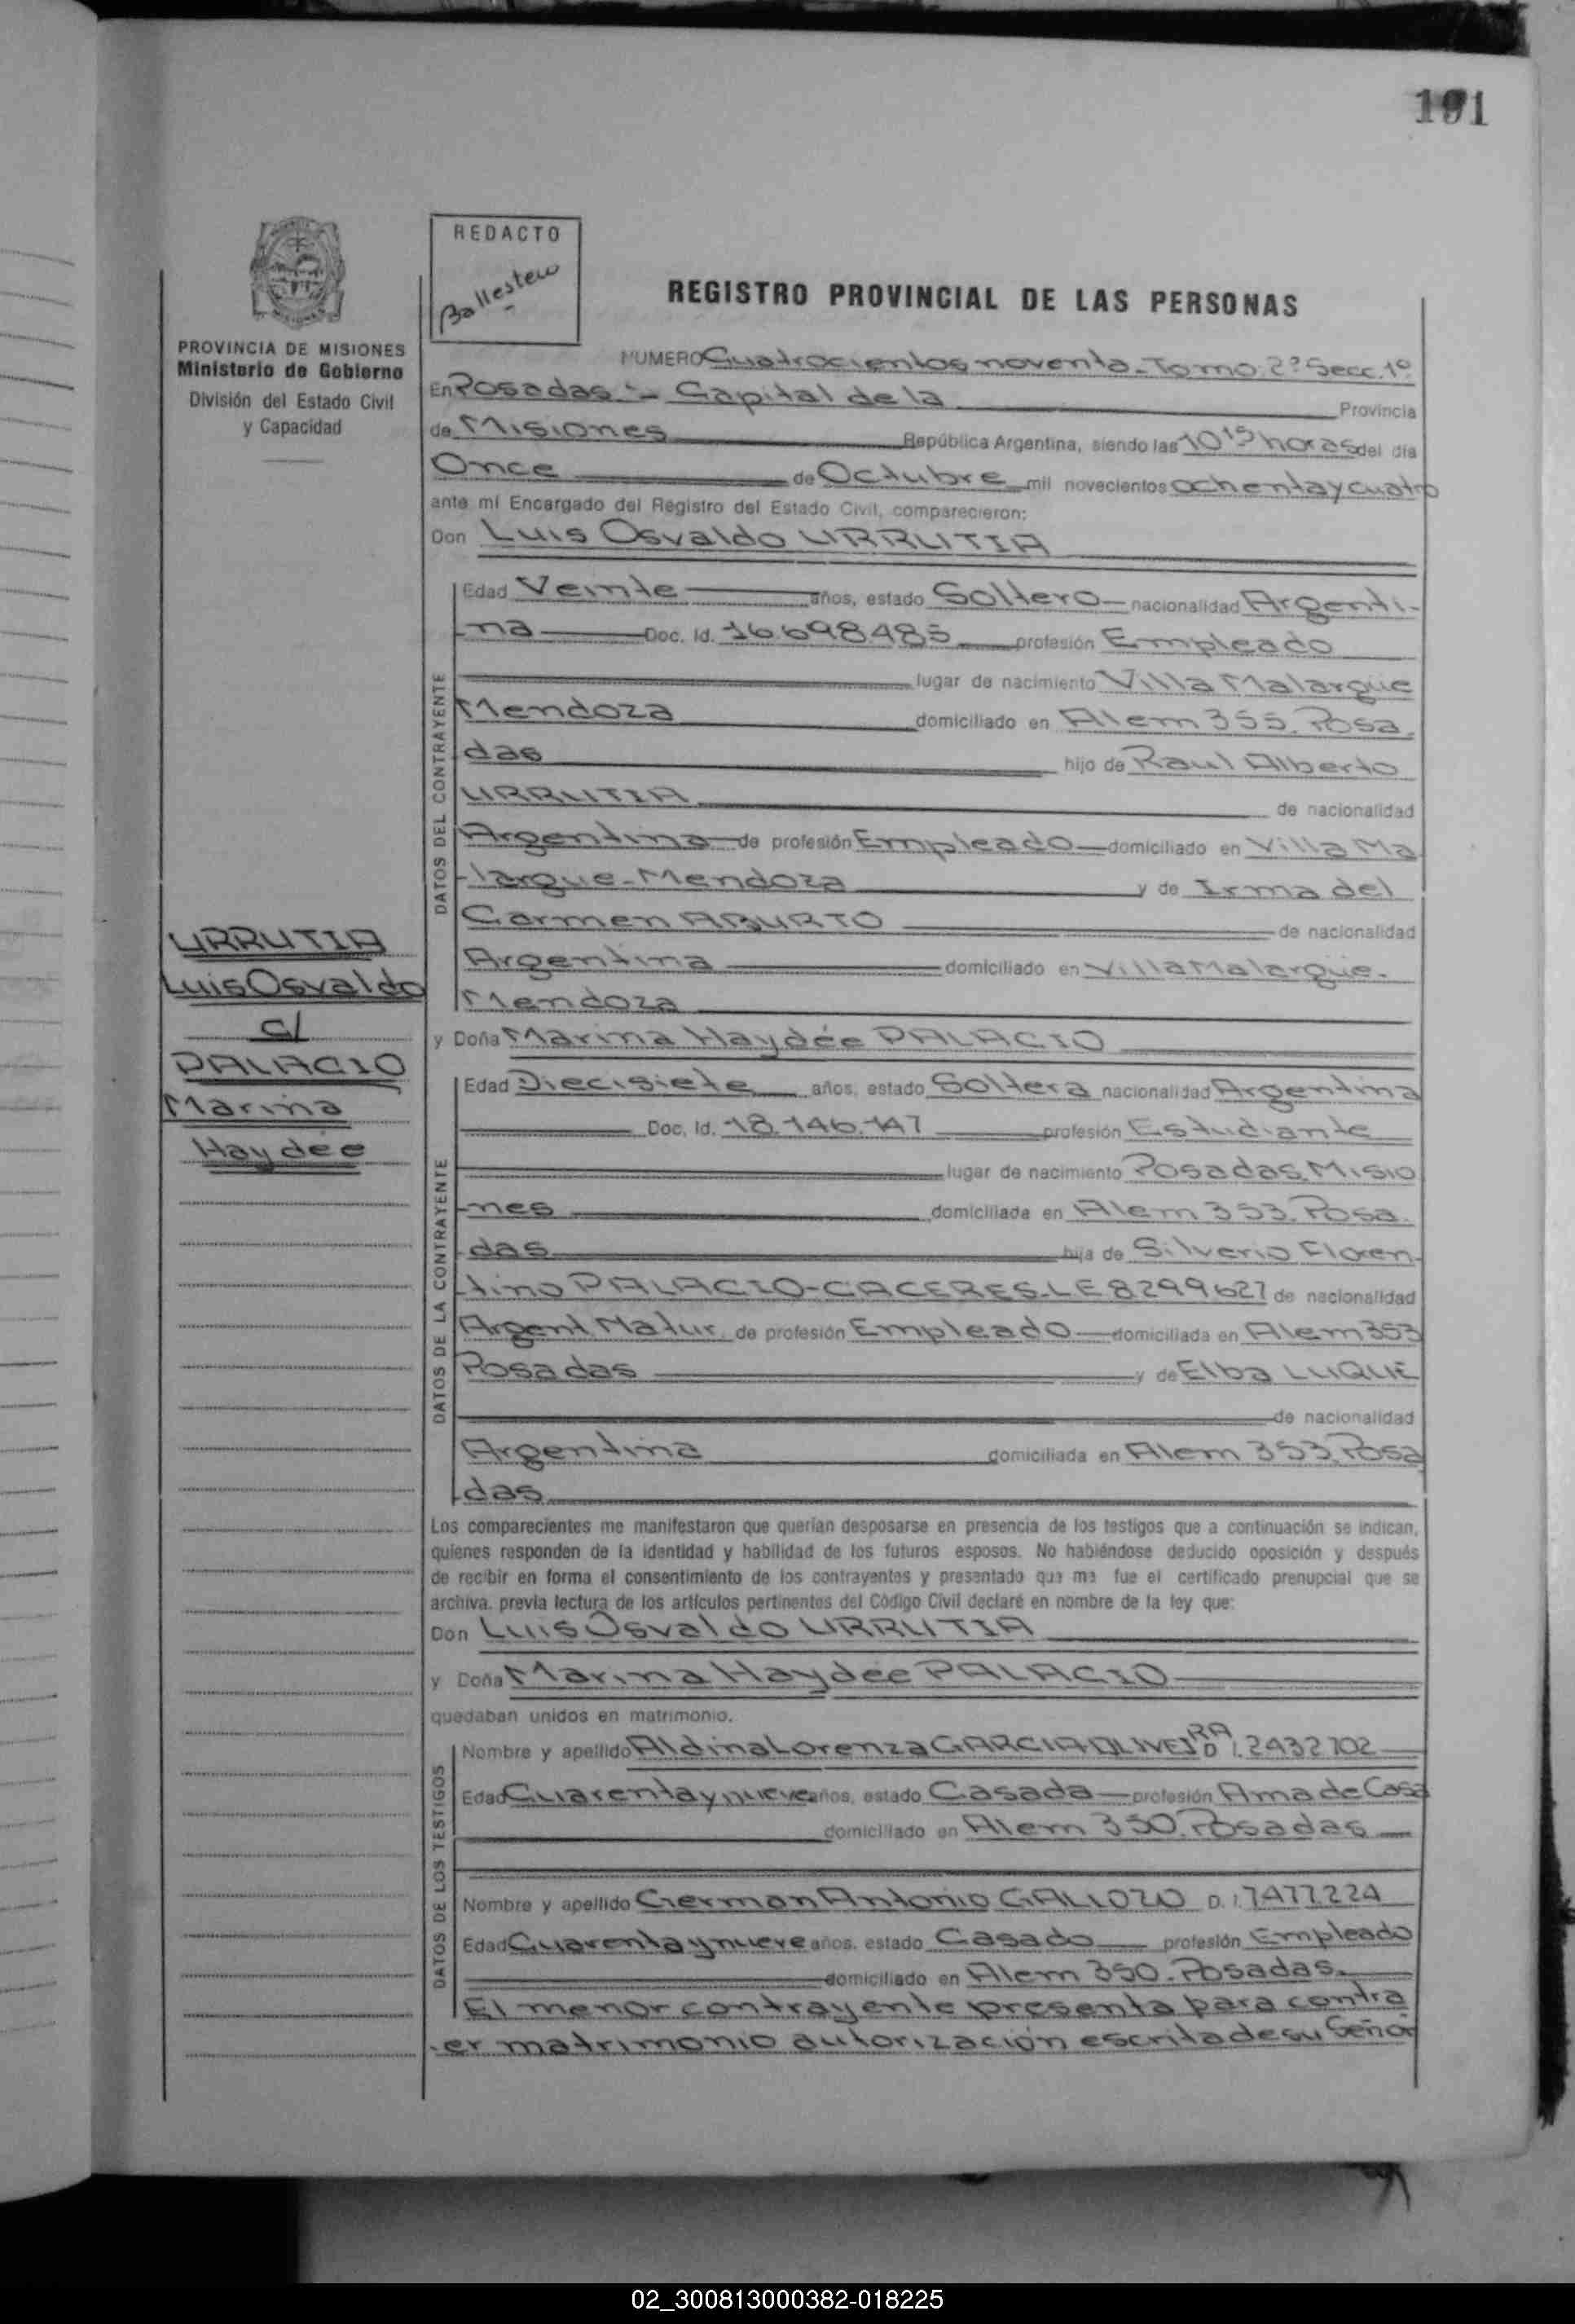 191
REDACTO
Ballestew
REGISTRO PROVINCIAL DE LAS PERSONAS
PROVINCIA DE MISIONES
Ministerio de Gobierno
División del Estado Civil
y Capacidad
NUMERO Cuatrocientos noventa - Tomo 2º Secc. 1º
En Posadas - Capital de la Provincia
de Misiones República Argentina, siendo las 10 15 horas del día
Once de Octubre mil novecientos ochenta y cuatro
ante mí Encargado del Registro del Estado Civil, comparecieron:
Don Luis Osvaldo URRUTIA
DATOS DEL CONTRAYENTE
Edad Veinte años, estado Soltero nacionalidad Argenti-
na Doc. Id. 16.698.485 profesión Empleado
lugar de nacimiento Villa Malargue
Mendoza domiciliado en Alem 355. Posa.
das hijo de Raul Alberto
URRUTIA de nacionalidad
Argentina de profesión Empleado domiciliado en Villa Ma
largue - Mendoza y de Irma del
Carmen ABURTO de nacionalidad
Argentina domiciliado en Villa Malargue.
Mendoza
URRUTIA
Luis Osvaldo
c/
PALACIO
Marina
Haydée
y Doña Marina Haydée PALACIO
DATOS DE LA CONTRAYENTE
Edad Diecisiete años, estado Soltera nacionalidad Argentina
Doc. Id. 18.146.147 profesión Estudiante
lugar de nacimiento Posadas, Misio
nes domiciliada en Alem 353. Posa.
das hija de Silverio Floren.
tino PALACIO - CACERES - LE 8299627 de nacionalidad
Argent Natur. de profesión Empleado domiciliada en Alem 353
Posadas y de Elba LUQUE
de nacionalidad
Argentina domiciliada en Alem 353. Posa
das
Los comparecientes me manifestaron que querían desposarse en presencia de los testigos que a continuación se indican,
quienes responden de la identidad y habilidad de los futuros esposos. No habiéndose deducido oposición y después
de recibir en forma el consentimiento de los contrayentes y presentado que me fue el certificado prenupcial que se
archiva. previa lectura de los artículos pertinentes del Código Civil declaré en nombre de la ley que:
Don Luis Osvaldo URRUTIA
y Doña Marina Haydée PALACIO
quedaban unidos en matrimonio.
DATOS DE LOS TESTIGOS
Nombre y apellido Aldina Lorenza GARCIA D.I. 2432702
Edad Cuarenta y nueve años, estado Casada profesión Ama de Casa
domiciliado en Alem 350. Posadas
Nombre y apellido German Antonio GALLOZO D.I. 7477224
Edad Cuarenta y nueve años, estado Casado profesión Empleado
domiciliado en Alem 350. Posadas.
El menor contrayente presenta para contra
er matrimonio autorización escrita de su Señor
02_300813000382-018225